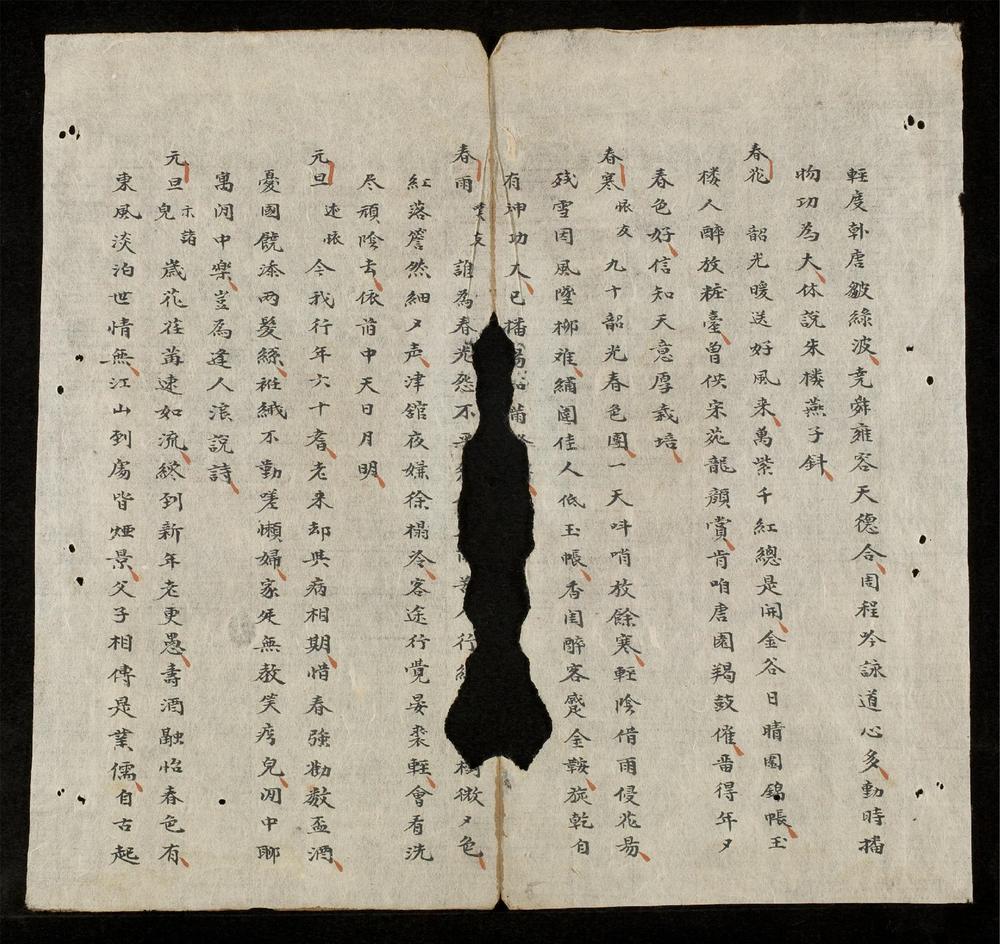 輕度軟唐皺綠波堯舜雍容天德合周程吟詠道心多動時播
物功為大休說朱楼燕子斜
春花 韶光暖送好風来萬紫千紅總是開金谷日晴園錦帳玉
楼人醉放粧臺曽供宋苑龍顔賞肯咱唐園羯鼓催畨得年〻
春色好信知天意厚栽培
春寒 依友 九十韶光春色園一天吽哨放餘寒輕陰借雨侵花昜
残雪因風墜柳难繡閣佳人低玉帳香闺醉客蹙金鞍旋乾自
有神功大已播
春雨 誰為春光怨不 行 樹微〻色
紅落簷然細〻声津舘夜嫌徐榻冷客途行覺晏裘輕會看洗
尽頑陰去依旧中天日月明
元旦 述怀 今我行年六十耆老来却與病相期惜春強勸数盃酒
憂國饒添两髪絲袵緎不勤嗟懶婦家㱙無教笑痴兒閑中聊
寓閑中楽豈為逢人浪說詩
元旦 示諸兒 歳花荏苒速如流終到新年老更愚壽酒融怡春色有
東風淡泊世情無江山到處皆煙景父子相傳是業儒自古起